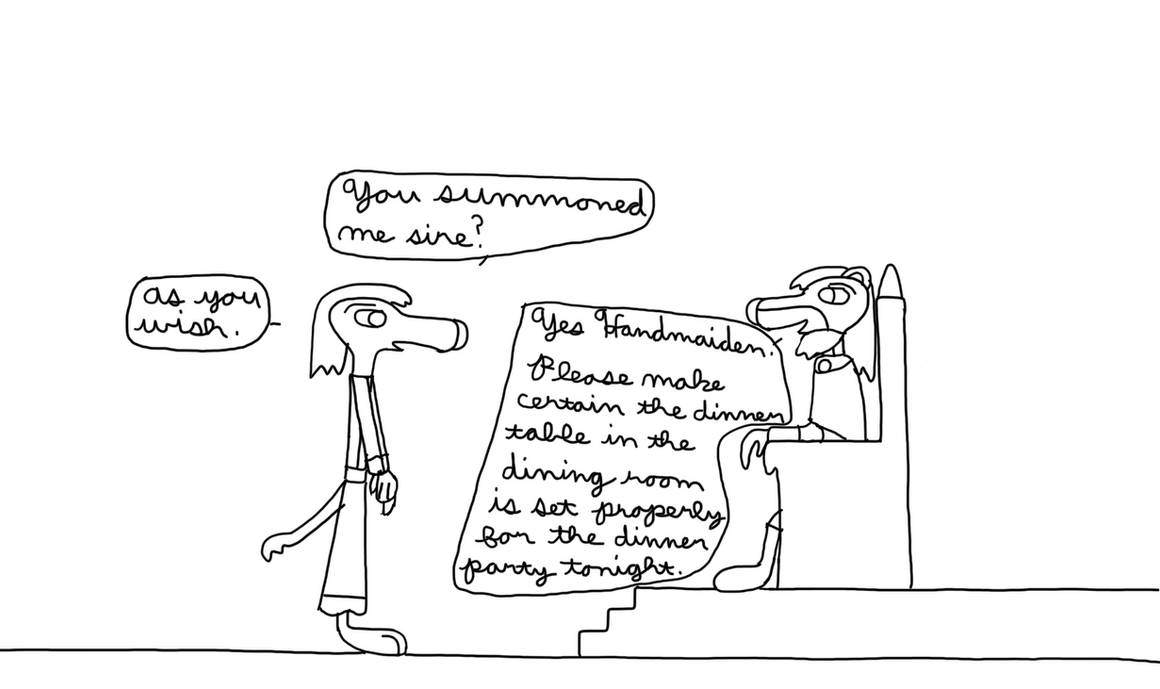 You summoned
me sire?
Yes Handmaiden.
Please make
certain the dinner
table in the
dining room
is set properly
for the dinner
party tonight.
as you
wish.